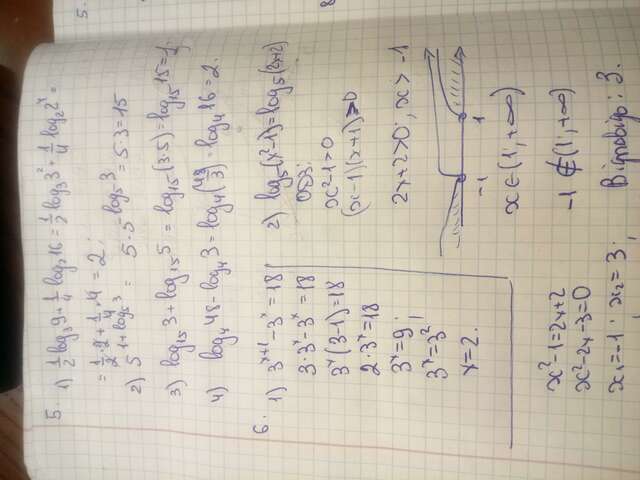 5.
8
5. 1) 1/2 log₃9 + 1/4 log₂16 = 1/2 log₃3² + 1/4 log₂2⁴ =
= 1/2·2 + 1/4·4 = 2;
2) 5^(1+log₅3) = 5·5^(log₅3) = 5·3=15
3) log₁₅3 + log₁₅5 = log₁₅(3·5) = log₁₅15=1;
4) log₄48 - log₄3 = log₄(48/3) = log₄16=2.
6. 1) 3^(x+1) - 3^x = 18
3·3^x - 3^x = 18
3^x(3-1)=18
2·3^x=18
3^x=9;
3^x=3²
x=2.
2) log₅(x²-1)=log₅(2x+2)
ОДЗ:
x²-1>0
(x-1)(x+1)>0
2x+2>0; x>-1
-1 1
x∈(1;+∞)
x²-1=2x+2
x²-2x-3=0
-1∉(1;+∞)
x₁=-1; x₂=3;
Відповідь: 3.